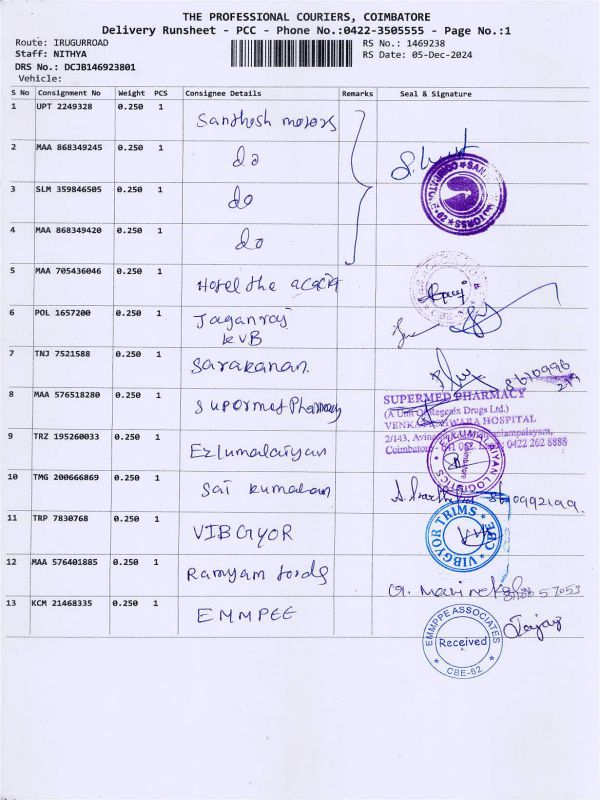 THE PROFESSIONAL COURIERS, COIMBATORE
Delivery Runsheet - PCC - Phone No.:0422-3505555 - Page No.:1
Route: IRUGURROAD
RS No.: 1469238
Staff: NITHYA
RS Date: 05-Dec-2024
DRS No.: DCJB146923801
Vehicle:
S No Consignment No Weight PCS Consignee Details Remarks Seal & Signature
1 UPT 2249328 0.250 1 Santhosh motors
2 MAA 868349245 0.250 1 do
3 SLM 359846505 0.250 1 do
4 MAA 868349420 0.250 1 do
5 MAA 705436046 0.250 1 Hotel the acacia
6 POL 1657200 0.250 1 Jaganraj
KVB
7 TNJ 7521588 0.250 1 Sarakanan.
8 MAA 576518280 0.250 1 Supormet Pharmacy
SUPERMED PHARMACY
(A Unit Of Regenix Drugs Ltd.)
HOSPITAL
2/143,
Coimbatore
0422 262 8888
9 TRZ 195260033 0.250 1 Ezlumalaiyan
10 TMG 200666869 0.250 1 Sai kumaran
11 TRP 7830768 0.250 1 VIBGYOR
VIBGYOR TRIMS
CBE
12 MAA 576401885 0.250 1 Ramyam foods
13 KCM 21468335 0.250 1 EMMPEE
EMMPPE ASSOCIATES
Received
CBE-62